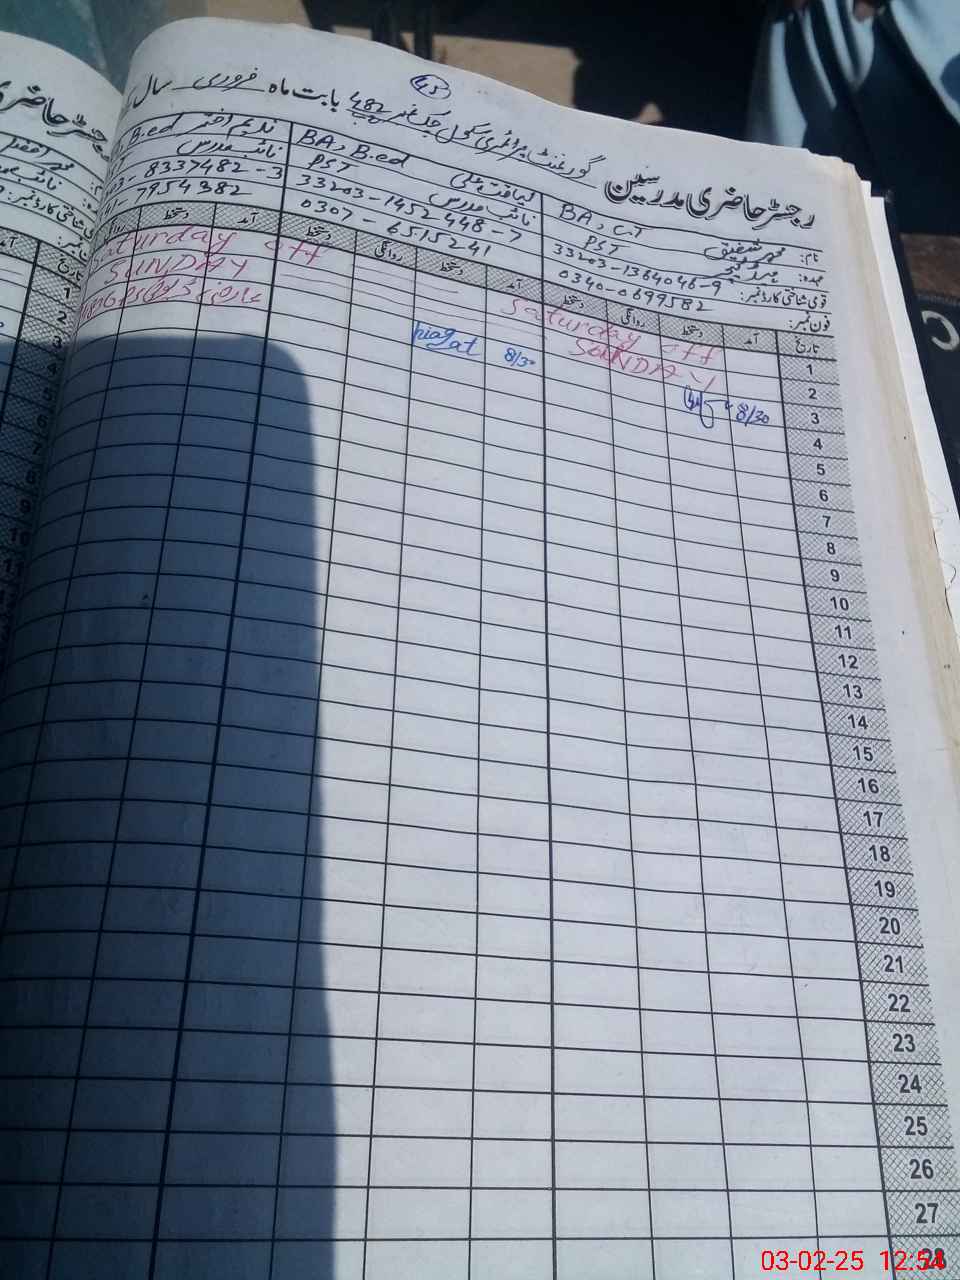 45
رجسٹر حاضری مدرسین گورنمنٹ پرائمری سکول چک نمبر 482 بابت ماہ فروری سال
نام: محمد شفیق BA, CT
عہدہ: PST
قومی شناختی کارڈ نمبر: 33203-1364046-9
فون نمبر: 0340-0699582
لیاقت علی BA, B.ed
نائب مدرس PST
33203-1452448-7
0307-6515241
ندیم اختر B.ed
نائب مدرس
8337482-3
7954382
تاریخ آمد دستخط روانگی دستخط آمد دستخط روانگی دستخط آمد دستخط
1 Saturday off Saturday off
2 SUNDAY SUNDAY
3 8/30 8/30 liaqat
4
5
6
7
8
9
10
11
12
13
14
15
16
17
18
19
20
21
22
23
24
25
26
27
28
03-02-25 12:54